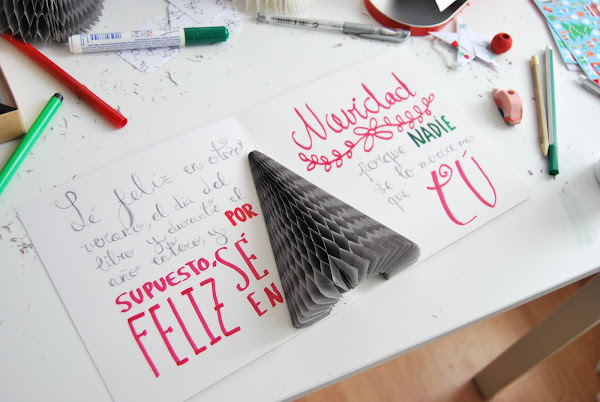 Sé feliz en otoño,
verano, el día del
libro y durante el
año entero, y POR
SUPUESTO,
FELIZ SÉ
EN
Navidad
porque NADIE
se lo merece más
que TÚ